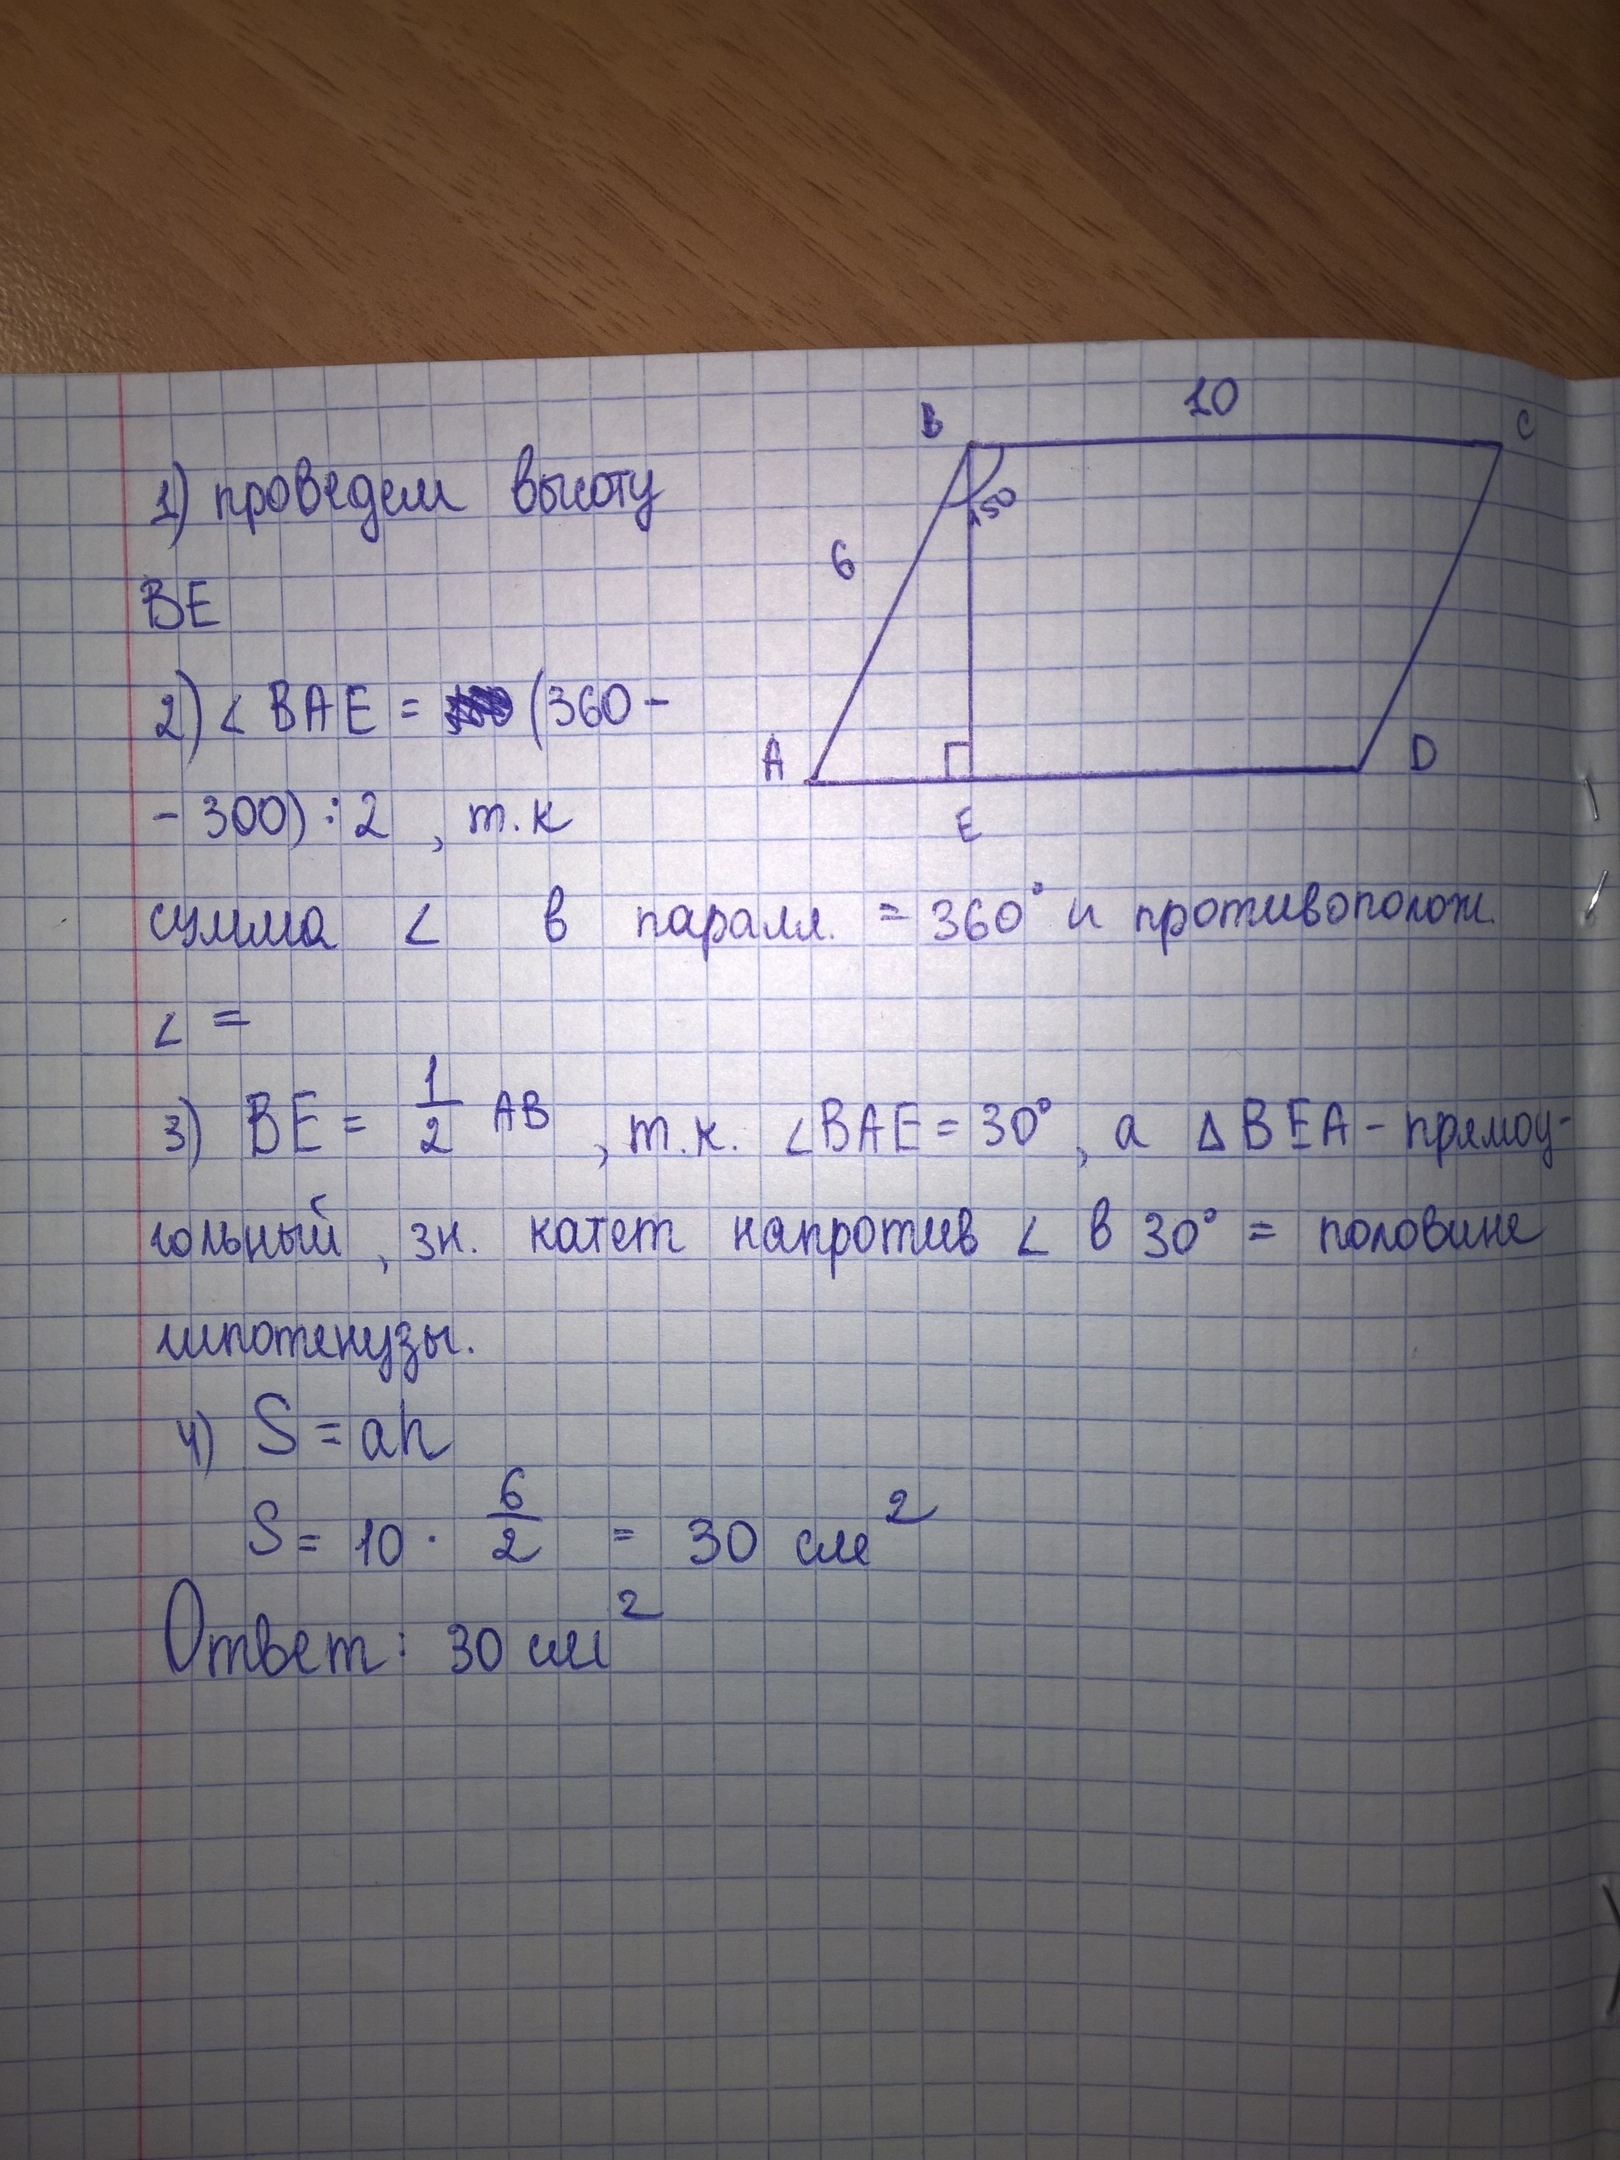 B
10
C
1) проведем высоту
150
6
BE
2) ∠ BAE = (360 -
A
D
- 300) : 2 , т.к
E
сумма ∠ в паралл. = 360° и противополож.
∠ =
3) BE = 1/2 AB , т.к. ∠BAE = 30° , а △BEA - прямоу-
гольный , зн. катет напротив ∠ в 30° = половине
гипотенузы.
4) S = ah
S = 10 · 6/2 = 30 см²
Ответ : 30 см²